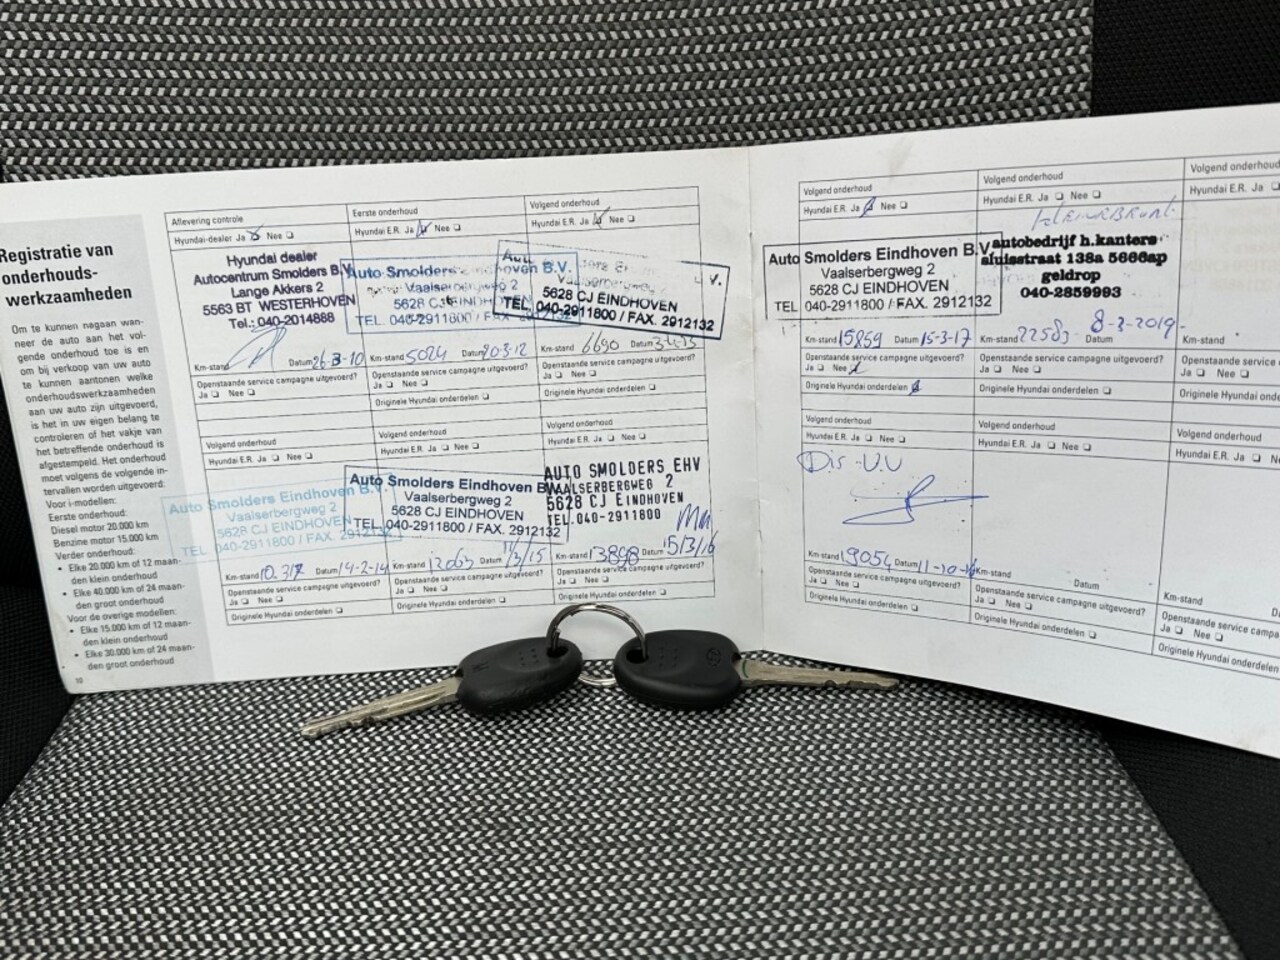 Registratie van
onderhouds-
werkzaamheden
Om te kunnen nagaan wan-
neer de auto aan het vol-
gende onderhoud toe is en
om bij verkoop van uw auto
te kunnen aantonen welke
onderhoudswerkzaamheden
aan uw auto zijn uitgevoerd,
is het in uw eigen belang te
controleren of het vakje van
het betreffende onderhoud is
afgestempeld. Het onderhoud
moet volgens de volgende in-
tervallen worden uitgevoerd:
Voor i-modellen:
Eerste onderhoud:
Diesel motor 20.000 km
Benzine motor 15.000 km
Verder onderhoud:
• Elke 20.000 km of 12 maan-
den klein onderhoud
• Elke 40.000 km of 24 maan-
den groot onderhoud
Voor de overige modellen:
• Elke 15.000 km of 12 maan-
den klein onderhoud
• Elke 30.000 km of 24 maan-
den groot onderhoud
10
Aflevering controle
Hyundai-dealer Ja Nee
Hyundai dealer
Autocentrum Smolders B.V.
Lange Akkers 2
5563 BT WESTERHOVEN
Tel.: 040-2014888
Km-stand Datum 26-3-10
Openstaande service campagne uitgevoerd?
Ja Nee
Eerste onderhoud
Hyundai E.R. Ja Nee
Auto Smolders Eindhoven B.V.
Vaalserbergweg 2
5628 CJ EINDHOVEN
TEL. 040-2911800 / FAX.
Km-stand 5024 Datum 20-3-12
Openstaande service campagne uitgevoerd?
Ja Nee
Originele Hyundai onderdelen
Volgend onderhoud
Hyundai E.R. Ja Nee
5628 CJ EINDHOVEN
TEL. 040-2911800 / FAX. 2912132
Km-stand 6690 Datum
Openstaande service campagne uitgevoerd?
Ja Nee
Originele Hyundai onderdelen
Volgend onderhoud
Hyundai E.R. Ja Nee
Auto Smolders Eindhoven B.V.
Vaalserbergweg 2
5628 CJ EINDHOVEN
TEL. 040-2911800 / FAX. 2912132
Km-stand 10.317 Datum 14-2-14
Openstaande service campagne uitgevoerd?
Ja Nee
Originele Hyundai onderdelen
Volgend onderhoud
Hyundai E.R. Ja Nee
Auto Smolders Eindhoven B.V.
Vaalserbergweg 2
5628 CJ EINDHOVEN
TEL. 040-2911800 / FAX. 2912132
Km-stand 12063 Datum /3/15
Openstaande service campagne uitgevoerd?
Ja Nee
Originele Hyundai onderdelen
Volgend onderhoud
Hyundai E.R. Ja Nee
AUTO SMOLDERS EHV
VAALSERBERGWEG 2
5628 CJ EINDHOVEN
TEL.040-2911800
Km-stand 13898 Datum 15/3/16
Openstaande service campagne uitgevoerd?
Ja Nee
Originele Hyundai onderdelen
Volgend onderhoud
Hyundai E.R. Ja Nee
Auto Smolders Eindhoven B.V.
Vaalserbergweg 2
5628 CJ EINDHOVEN
TEL 040-2911800 / FAX. 2912132
Km-stand 15859 Datum 15-3-17
Openstaande service campagne uitgevoerd?
Ja Nee
Originele Hyundai onderdelen
Volgend onderhoud
Hyundai E.R. Ja Nee
autobedrijf h.kanters
sluisstraat 138a 5666ap
geldrop
040-2859993
Km-stand 22583 Datum 8-3-2019
Openstaande service campagne uitgevoerd?
Ja Nee
Originele Hyundai onderdelen
Volgend onderhoud
Hyundai E.R. Ja
Km-stand
Openstaande service
Ja Nee
Originele Hyundai
Volgend onderhoud
Hyundai E.R. Ja Nee
Dis-V.V
Km-stand 19054 Datum 11-10-
Openstaande service campagne uitgevoerd?
Ja Nee
Originele Hyundai onderdelen
Volgend onderhoud
Hyundai E.R. Ja Nee
Km-stand Datum
Openstaande service campagne uitgevoerd?
Ja Nee
Originele Hyundai onderdelen
Volgend onderhoud
Hyundai E.R. Ja
Km-stand
Openstaande service campa
Ja Nee
Originele Hyundai onderdelen